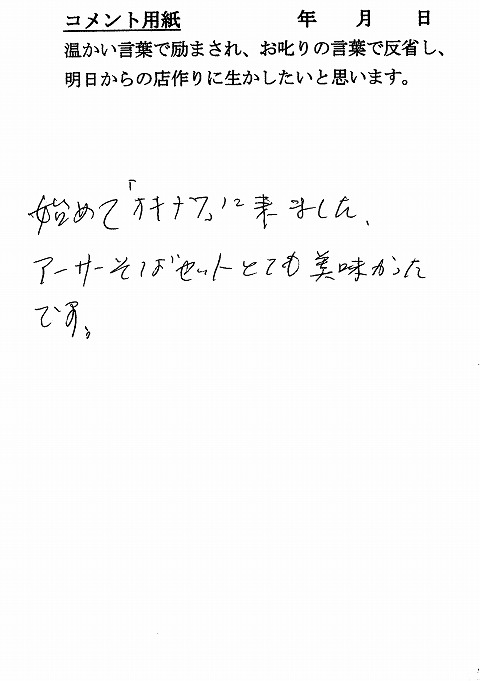 コメント用紙 年 月 日
温かい言葉で励まされ、お叱りの言葉で反省し、
明日からの店作りに生かしたいと思います。
始めて「オキナワ」に来ました、
アーサーそばセットとても美味かった
です。